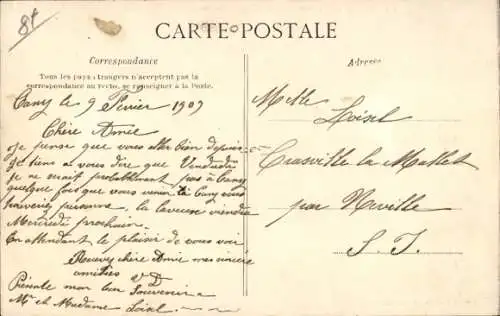 8f
CARTE POSTALE
Correspondance
Tous les pays étrangers n'acceptent pas la
correspondance au recto, se renseigner à la Poste.
Adresse
Cany le 9 Fevrier 1909
Chère Amie
Je pense que vous alle bien depuis
je tiens a vous dire que Vendredi
je ne sait probablement pas à Cany
quelque fois que vous venir à Cany vous
personne, la laveuse viendra
Mercredi prochain.
En attendant le plaisir de vous voir
Recevez chère Amie mes sincère
amitiés V D
mon bon Souvenir a
Mr et Madame Loisel
Melle Loisel
Crasville la Mallet
par Neville
S. I.